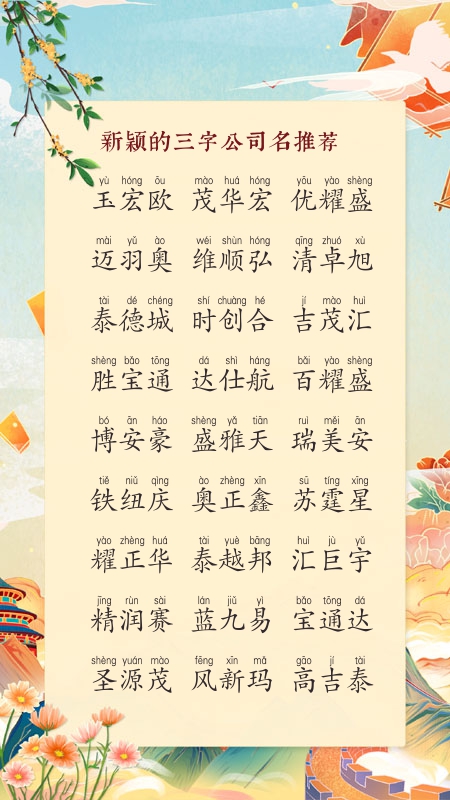 新颖的三字公司名推荐
yù hóng ōu mào huá hóng yōu yào shèng
玉宏欧 茂华宏 优耀盛
mài yǔ ào wéi shùn hóng qīng zhuó xù
迈羽奥 维顺弘 清卓旭
tài dé chéng shí chuàng hé jí mào huì
泰德城 时创合 吉茂汇
shèng bǎo tōng dá shì háng bǎi yào shèng
胜宝通 达仕航 百耀盛
bó ān háo shèng yǎ tiān ruì měi ān
博安豪 盛雅天 瑞美安
tiě niǔ qìng ào zhèng xīn sū tíng xīng
铁纽庆 奥正鑫 苏霆星
yào zhèng huá tài yuè bāng huì jù yǔ
耀正华 泰越邦 汇巨宇
jīng rùn sài lán jiǔ yì bǎo tōng dá
精润赛 蓝九易 宝通达
shèng yuán mào fēng xīn mǎ gāo jí tài
圣源茂 风新玛 高吉泰